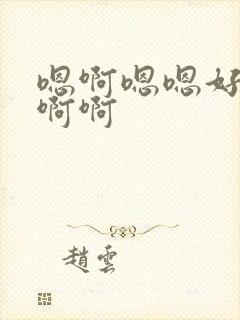 嗯啊嗯嗯好
啊啊
趙雲